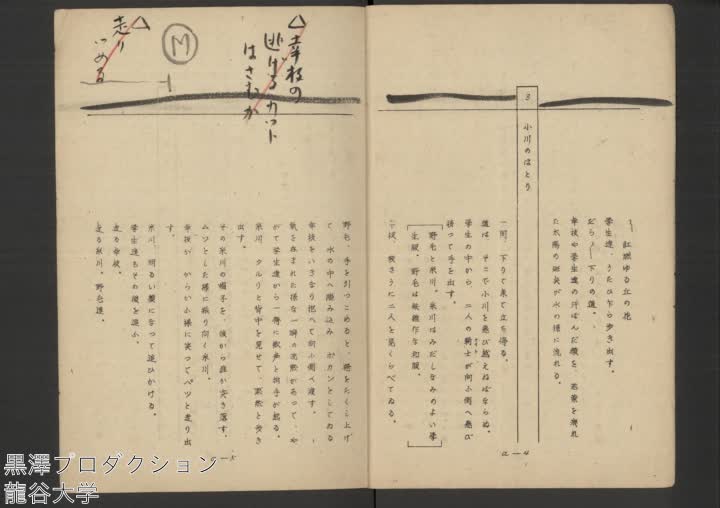 〽 紅燃ゆる丘の花
学生達、うたひ乍ら歩き出す。
だら〳〵下りの道。
幸枝や学生達の汗ばんだ顔を、若葉を洩れ
た太陽の斑点が水の様に流れる。
3
小川のほとり
一同、下りて来て立ち停る。
道は、そこで小川を飛び越えねばならぬ。
学生の中から、二人の騎士が向ふ側へ飛び
移って手を出す。
野毛と糸川。糸川はみだしなみのよい学
生服。野毛は無雑作な和服。
幸枝、我さうに二人を見くらべてゐる。
a—4
野毛、手を引つこめると、裾をたくし上げ
て、水の中へ踏み込み ポカンとしてゐる
幸枝をいきなり抱へて向ふ側へ渡す。
気を呑まれた様な一瞬の沈黙があつて、や
がて学生達から一斉に歓声と拍手が起る。
糸川、クルリと背中を見せて、黙然と歩き
出す。
その糸川の帽子を、後から誰か突き落す。
ムツとした様に振り向く糸川。
幸枝が からかふ様に笑つてパツと走り出
す。
糸川、明るい顔になつて追ひかける。
学生達もその後を追ふ。
走る幸枝。
走る糸川。野毛達。
a—5
△幸枝の
逃げるカット
はさむか
M
△走り
つめる
黒澤プロダクション
龍谷大学